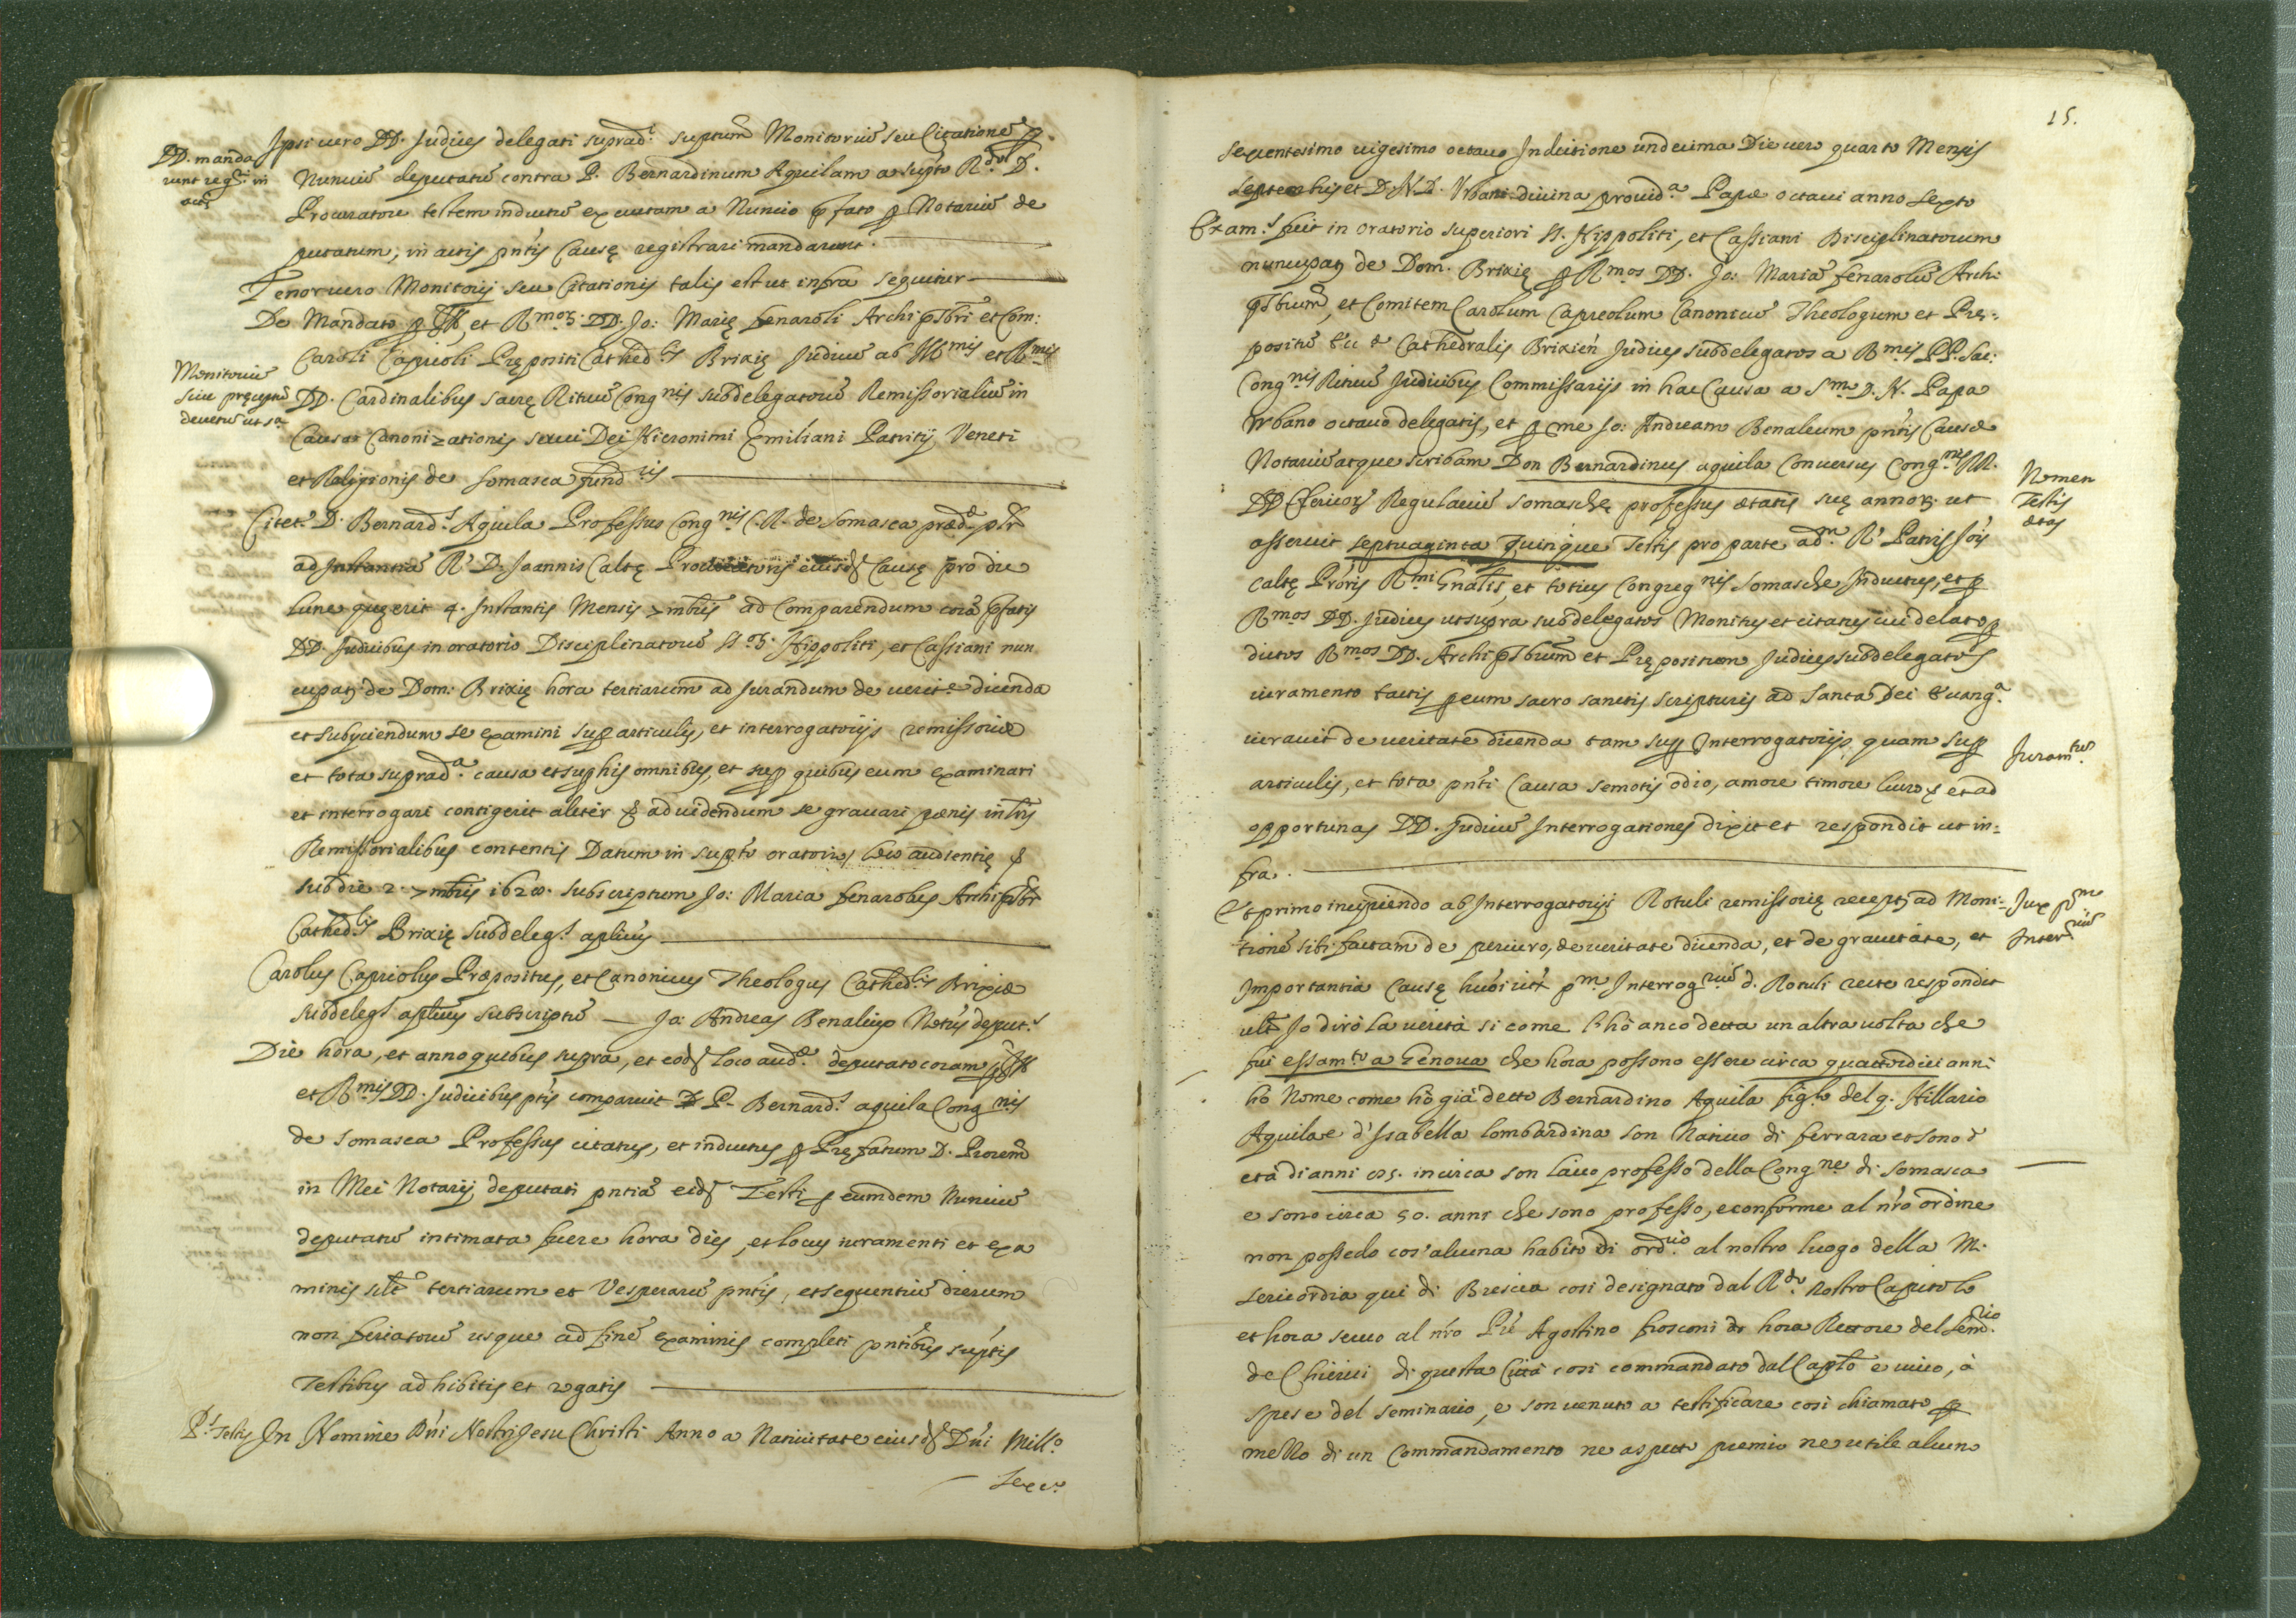 Ipsi uero DD. Judices delegati suprad.ti suptum Monitoriũ seu Citationẽ p
DD. manda
runt reg.ri in
actis
Nunciũ deputatũ contra P. Bernardinum Aquilam a supto R.do D.
Procuratore testem inductũ executam a Nuncio pfato p Notariũ de
putatum, in actis pntis Causę registrari mandarunt.
Tenor uero Monitorij seu Citationis talis est ut infra sequitur
De Mandato p Ill. et Rmoʒ. DD. Jo: Marię fenaroli Archipbri et Com:
Caroli Caprioli Prępositi Cathed.lis Brixię Judicũ ab Illmis et Rmis
Monitoriũ
siue pręceptũ
decretũ ut sa
DD. Cardinalibus sacrę Rituũ Congnis subdelegatorũ Remissorialiũ in
Causa Canonizationis serui Dei Hieronimi Emiliani Patritij Veneti
et Religionis de Somasca fundris
Citet.r D. Bernard.s Aquila Professus Congnis C.R. de Somasca præd.æ
ad Instantiã R.di D. Joannis Caltę Procuratoris eiusd. Causę pro die
lune quę erit 4. Instantis Mensis 7mbris ad Comparendum corã pfatis
DD. Judicibus in oratorio Disciplinatorũ SS.oʒ. Hippoliti, et Cassiani nun
cupatʒ de Dom: Brixię hora tertiarum ad Jurandum de uerit.e dicenda
et subijciendum se examini sup articulis, et interrogatorijs remissoriæ
et tota suprad.a causa et sup his omnibus, et sup quibus eum examinari
et interrogari contigerit aliter & ad uidendum se grauari pænis in lris
Remissorialibus contentis Datum in supto oratorio, loco audientię &
sub die 2. 7mbris 1628. subscriptum Jo: Maria fenarolus Archipbr
Cathed.lis Brixię subdeleg.s aplicus
Carolus Capriolus Præpositus, et Canonicus Theologus Cathed.lis Brixiæ
subdeleg.s aplicus subscriptũ — Jo: Andreas Benaleus Notrius deput.s
Die hora, et anno quibus supra, et eod. loco aud.æ deputato coram p Ill.
et Rmis DD. Judicibus ptis comparuit D P. Bernard.s aquila Congnis
de Somasca Professus citatus, et inductus p Pręfatum D. Procrem
in Mei Notarij deputati pntia eid. Testi p eumdem Nunciũ
deputatũ intimata fuere hora dies, et locus iuramenti et exa
minis silt tertiarum et Vesperarũ pntis, et sequentiũ dierum
non feriatorũ usque ad finẽ examinis completi pntibus suptis
Testibus adhibitis et rogatis
P.s Testis In Nomine Dni Nostri Jesu Christi Anno a Natiuitate eiusd. Dni Mill.o
Sexc.o
15.
sexentesimo uigesimo octauo Indictione undecima Die uero quarto Mensis
Septembris et D.N.D. Vrbani diuina prouid.a Papæ octaui anno sexto
Exam.s fuit in oratorio superiori SS. Hippoliti, et Cassiani Disciplinatorum
nuncupatʒ de Dom. Brixię p Rmos DD. Jo: Mariã fenarolũ Archi
pbrum, et Comitem Carolum Capreolum Canonicũ Theologum et Pręː
positũ Ecc.æ Cathedralis Brixien Judices subdelegatos a Rmis PP. Sac:
Congnis Rituũ Judicibus Commissarijs in hac Causa a Smo D. N. Papa
Vrbano octauo delegatis, et p me Jo: Andream Benaleum pntis Causæ
Notariũ atque scribam Don Bernardinus aquila Conuersus Congnis RR.
Nomen
Testis
ætas
DD Clericoʒ Regulariũ Somaschę professus ætatis suę annoʒ ut
asseruit septuaginta quinque Testis pro parte ad.m R.di Patris Jois
Caltę Proris Rmi Gnalis, et totius Congregnis Somasche Inductus, et p
Rmos DD. Judices ut supra subdelegatos Monitus et citatus cui delato p
dictos Rmos DD. Archipbrum et Prępositum Judices subdelegatos
iuramento tactis p eum sacro sanctis scripturis ad Santa Dei Euang.a
iurauit de ueritate dicenda tam sup Interrogatorijs, quam sup
Juram.tũ
articulis, et tota pnti Causa semotis odio, amore timore lucro & et ad
opportunas DD. Judicũ Interrogationes dixit et respondit ut in=
fra.
Et primo incipiendo ab Interrogatorijs Rotuli remissorię recepti ad Moni=
Jux pm
Interrium
tionẽ sibi factam de periuro, de ueritate dicenda, et de grauitate, et
Importantia Causę huiõi iuxt pm Interrogrium d. Rotuli recte respondit
ult Io dirò la uerità si come l'hò anco detta un altra uolta che
fui essam.to a Genoua che hora possono essere circa quattordici anni
hò Nome come hò già detto Bernardino Aquila fig.lo del q. Hillario
Aquila e d'Isabella lombardina son Natiuo di ferrara et sono d
età di anni 75. in circa son laico professo della Congne di Somasca
e sono circa 50. anni che sono professo, e conforme al nro ordine
non possedo cos'alcuna habito di ord.rio al nostro luogo della M.
sericordia qui di Brescia così designato dal R.do Nostro Capitolo
et hora seruo al nro Pre Agostino frosconi hora Rettore del Sem.rio
de Chierici di questa Città così commandato dal Caplo e uiuo, à
spese del seminario, e son uenuto a testificare così chiamato p
mezzo di un Commandamento ne aspetto premio ne utile alcuno